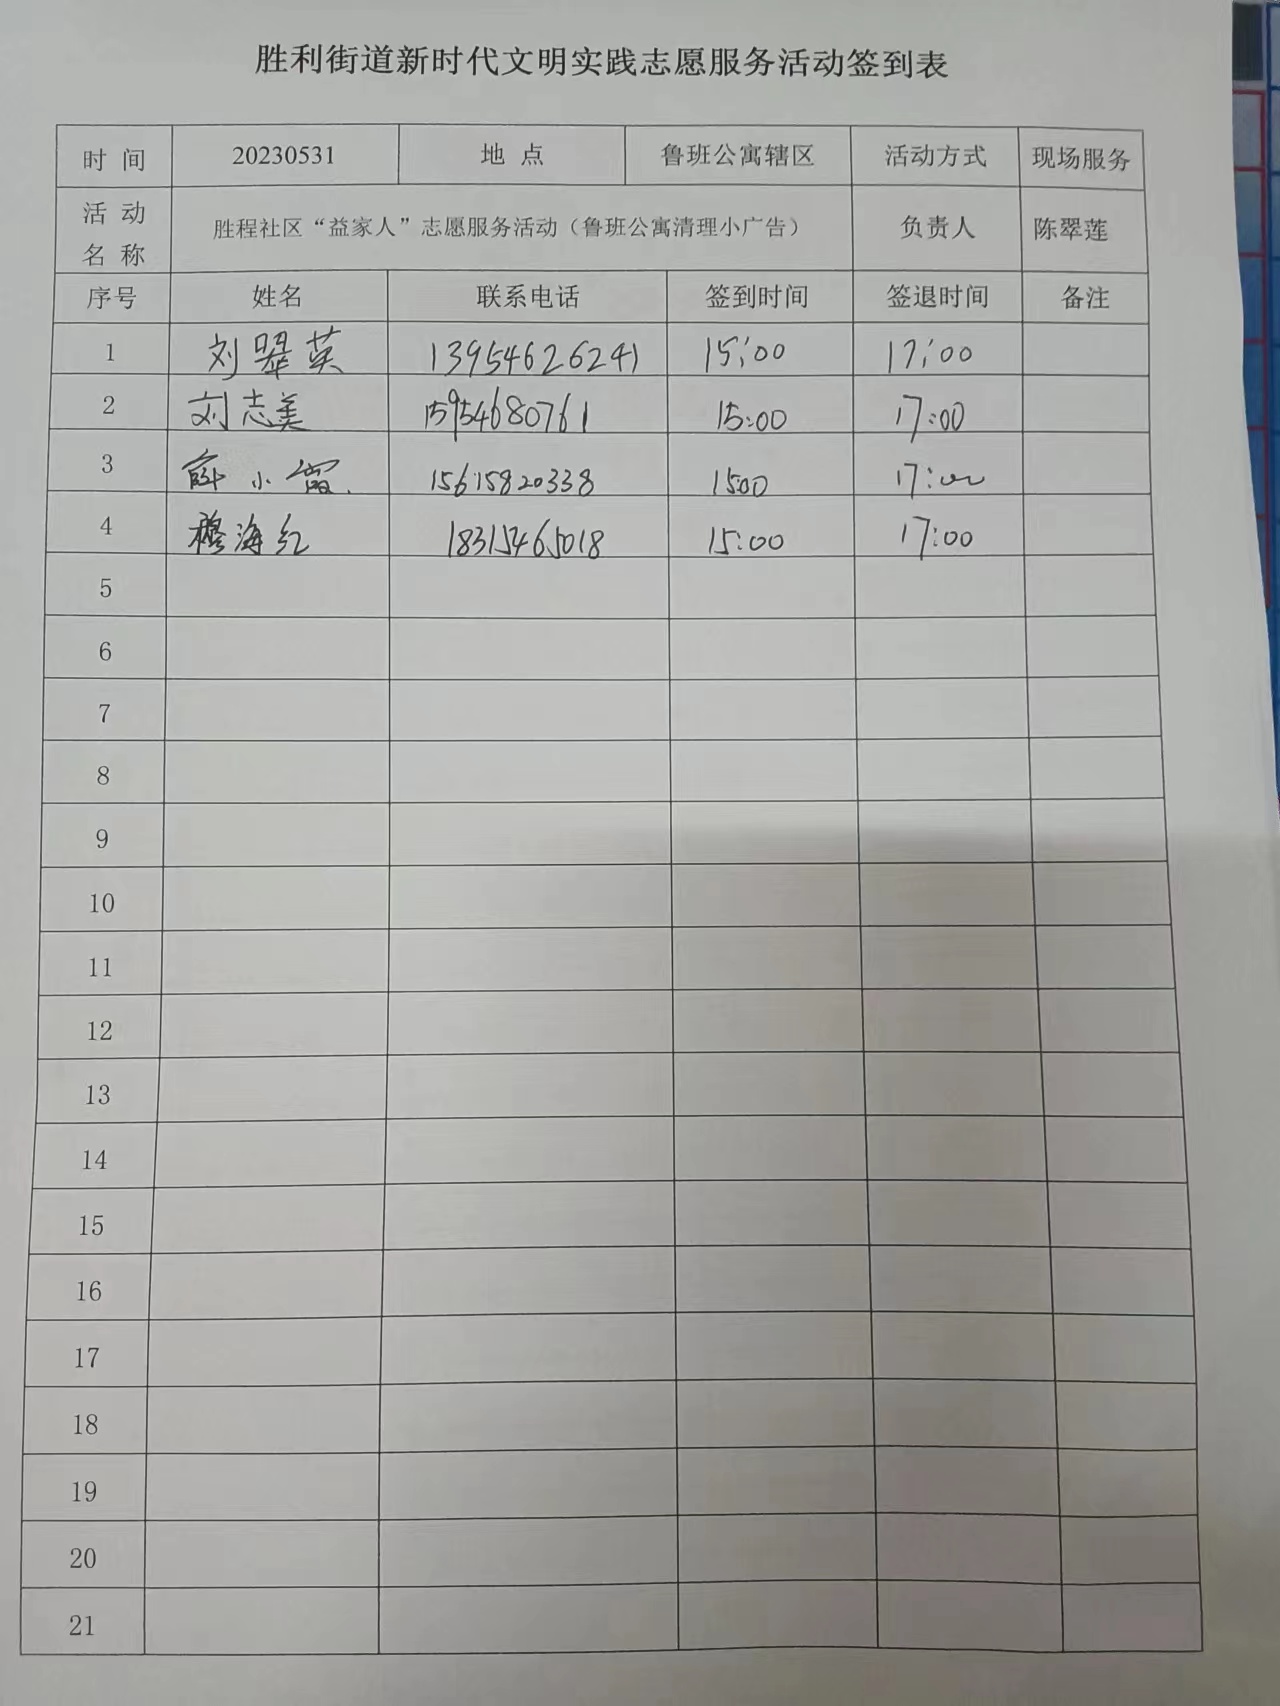 胜利街道新时代文明实践志愿服务活动签到表
时 间 20230531 地 点 鲁班公寓辖区 活动方式 现场服务
活 动 名 称 胜程社区“益家人”志愿服务活动（鲁班公寓清理小广告） 负责人 陈翠莲
序号 姓名 联系电话 签到时间 签退时间 备注
1 刘翠英 13954626241 15:00 17:00
2 刘志美 15954680761 15:00 17:00
3 薛小霞 15615820338 1500 17:00
4 穆海红 18315465018 15:00 17:00
5
6
7
8
9
10
11
12
13
14
15
16
17
18
19
20
21